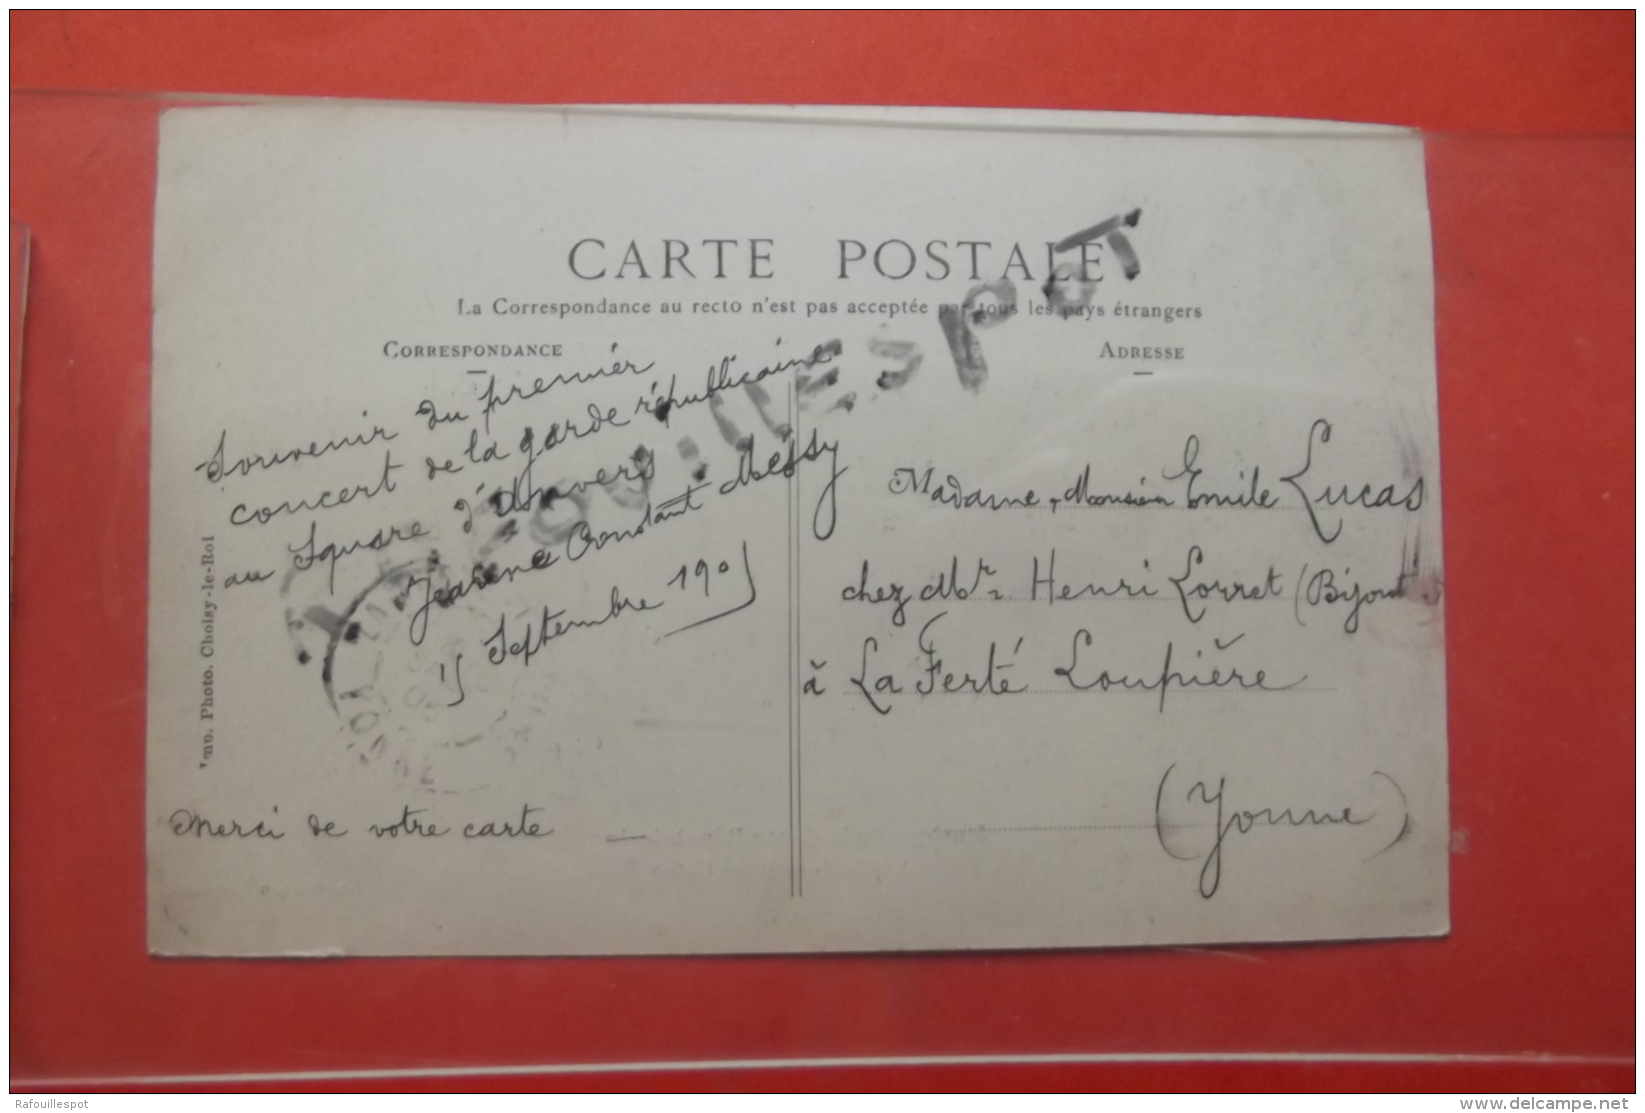 CARTE POSTALE
La Correspondance au recto n'est pas acceptée par tous les pays étrangers
CORRESPONDANCE
ADRESSE
Souvenir du premier
concert de la garde républicaine
au Square d'Anvers
Jeanne Constant Messy
15 Septembre 1905
Merci de votre carte
Imp. Photo. Choisy-le-Roi
Madame, Monsieur Emile Lucas
chez Mr. Henri Lorret (Bijout
à La Ferté Loupière
(Yonne)
RAFOUILLESPOT
Rafouillespot
www.delcampe.net